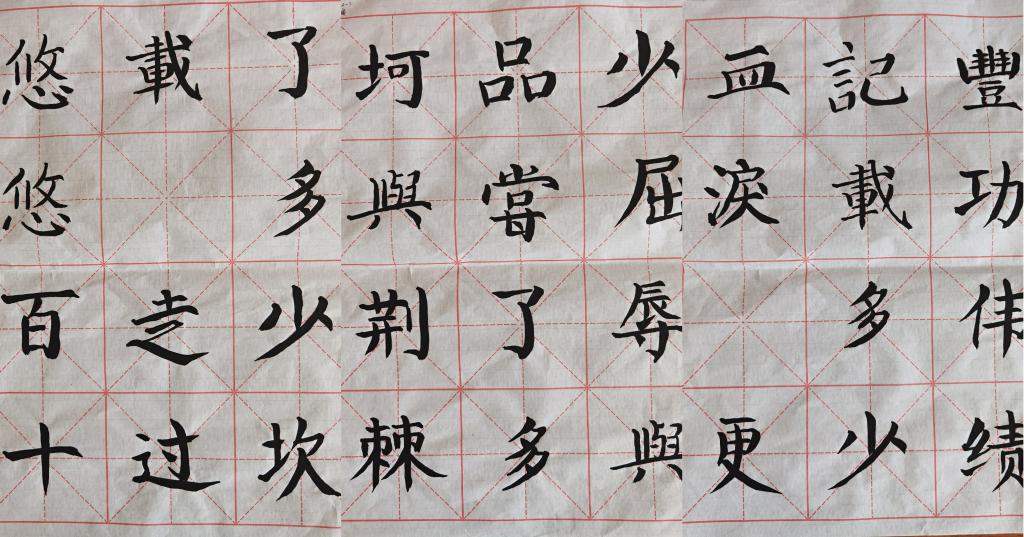 悠悠百十
載 走过
了多少坎
坷與荆棘
品嘗了多
少屈辱與
血淚 更
記載多少
豐功伟绩